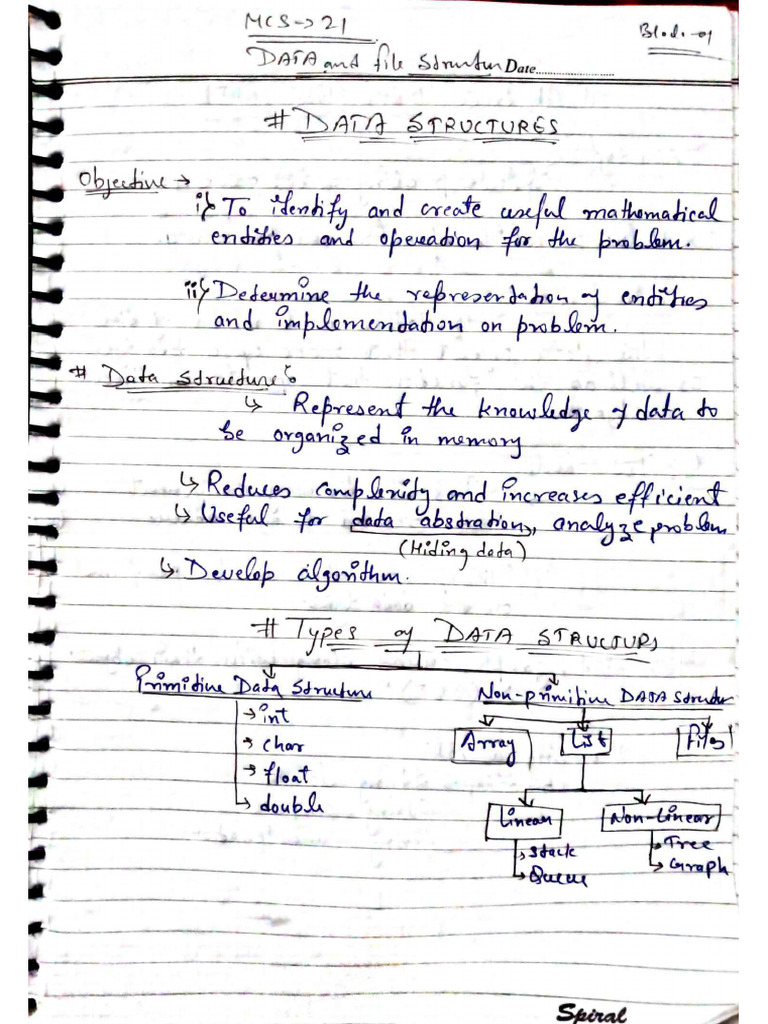 MCS→21
Block-01
DATA and file Structur Date
# DATA STRUCTURES
Objective →
i) To identify and create useful mathematical
entities and operation for the problem.
ii) Determine the representation of entities
and implementation on problem.
# Data Structure:
↳ Represent the knowledge of data to
be organized in memory
↳ Reduces complexity and increases efficient
↳ Useful for data abstration, analyze problem
(Hiding data)
↳ Develop algorithm.
# TYPES of DATA STRUCTURS
Primitive Data Structure
Non-primitive DATA Structur
→ int
→ char
→ float
→ double
Array
List
Files
Linear
Non-Linear
→ Stack
→ Queue
→ Tree
→ Graph
Spiral